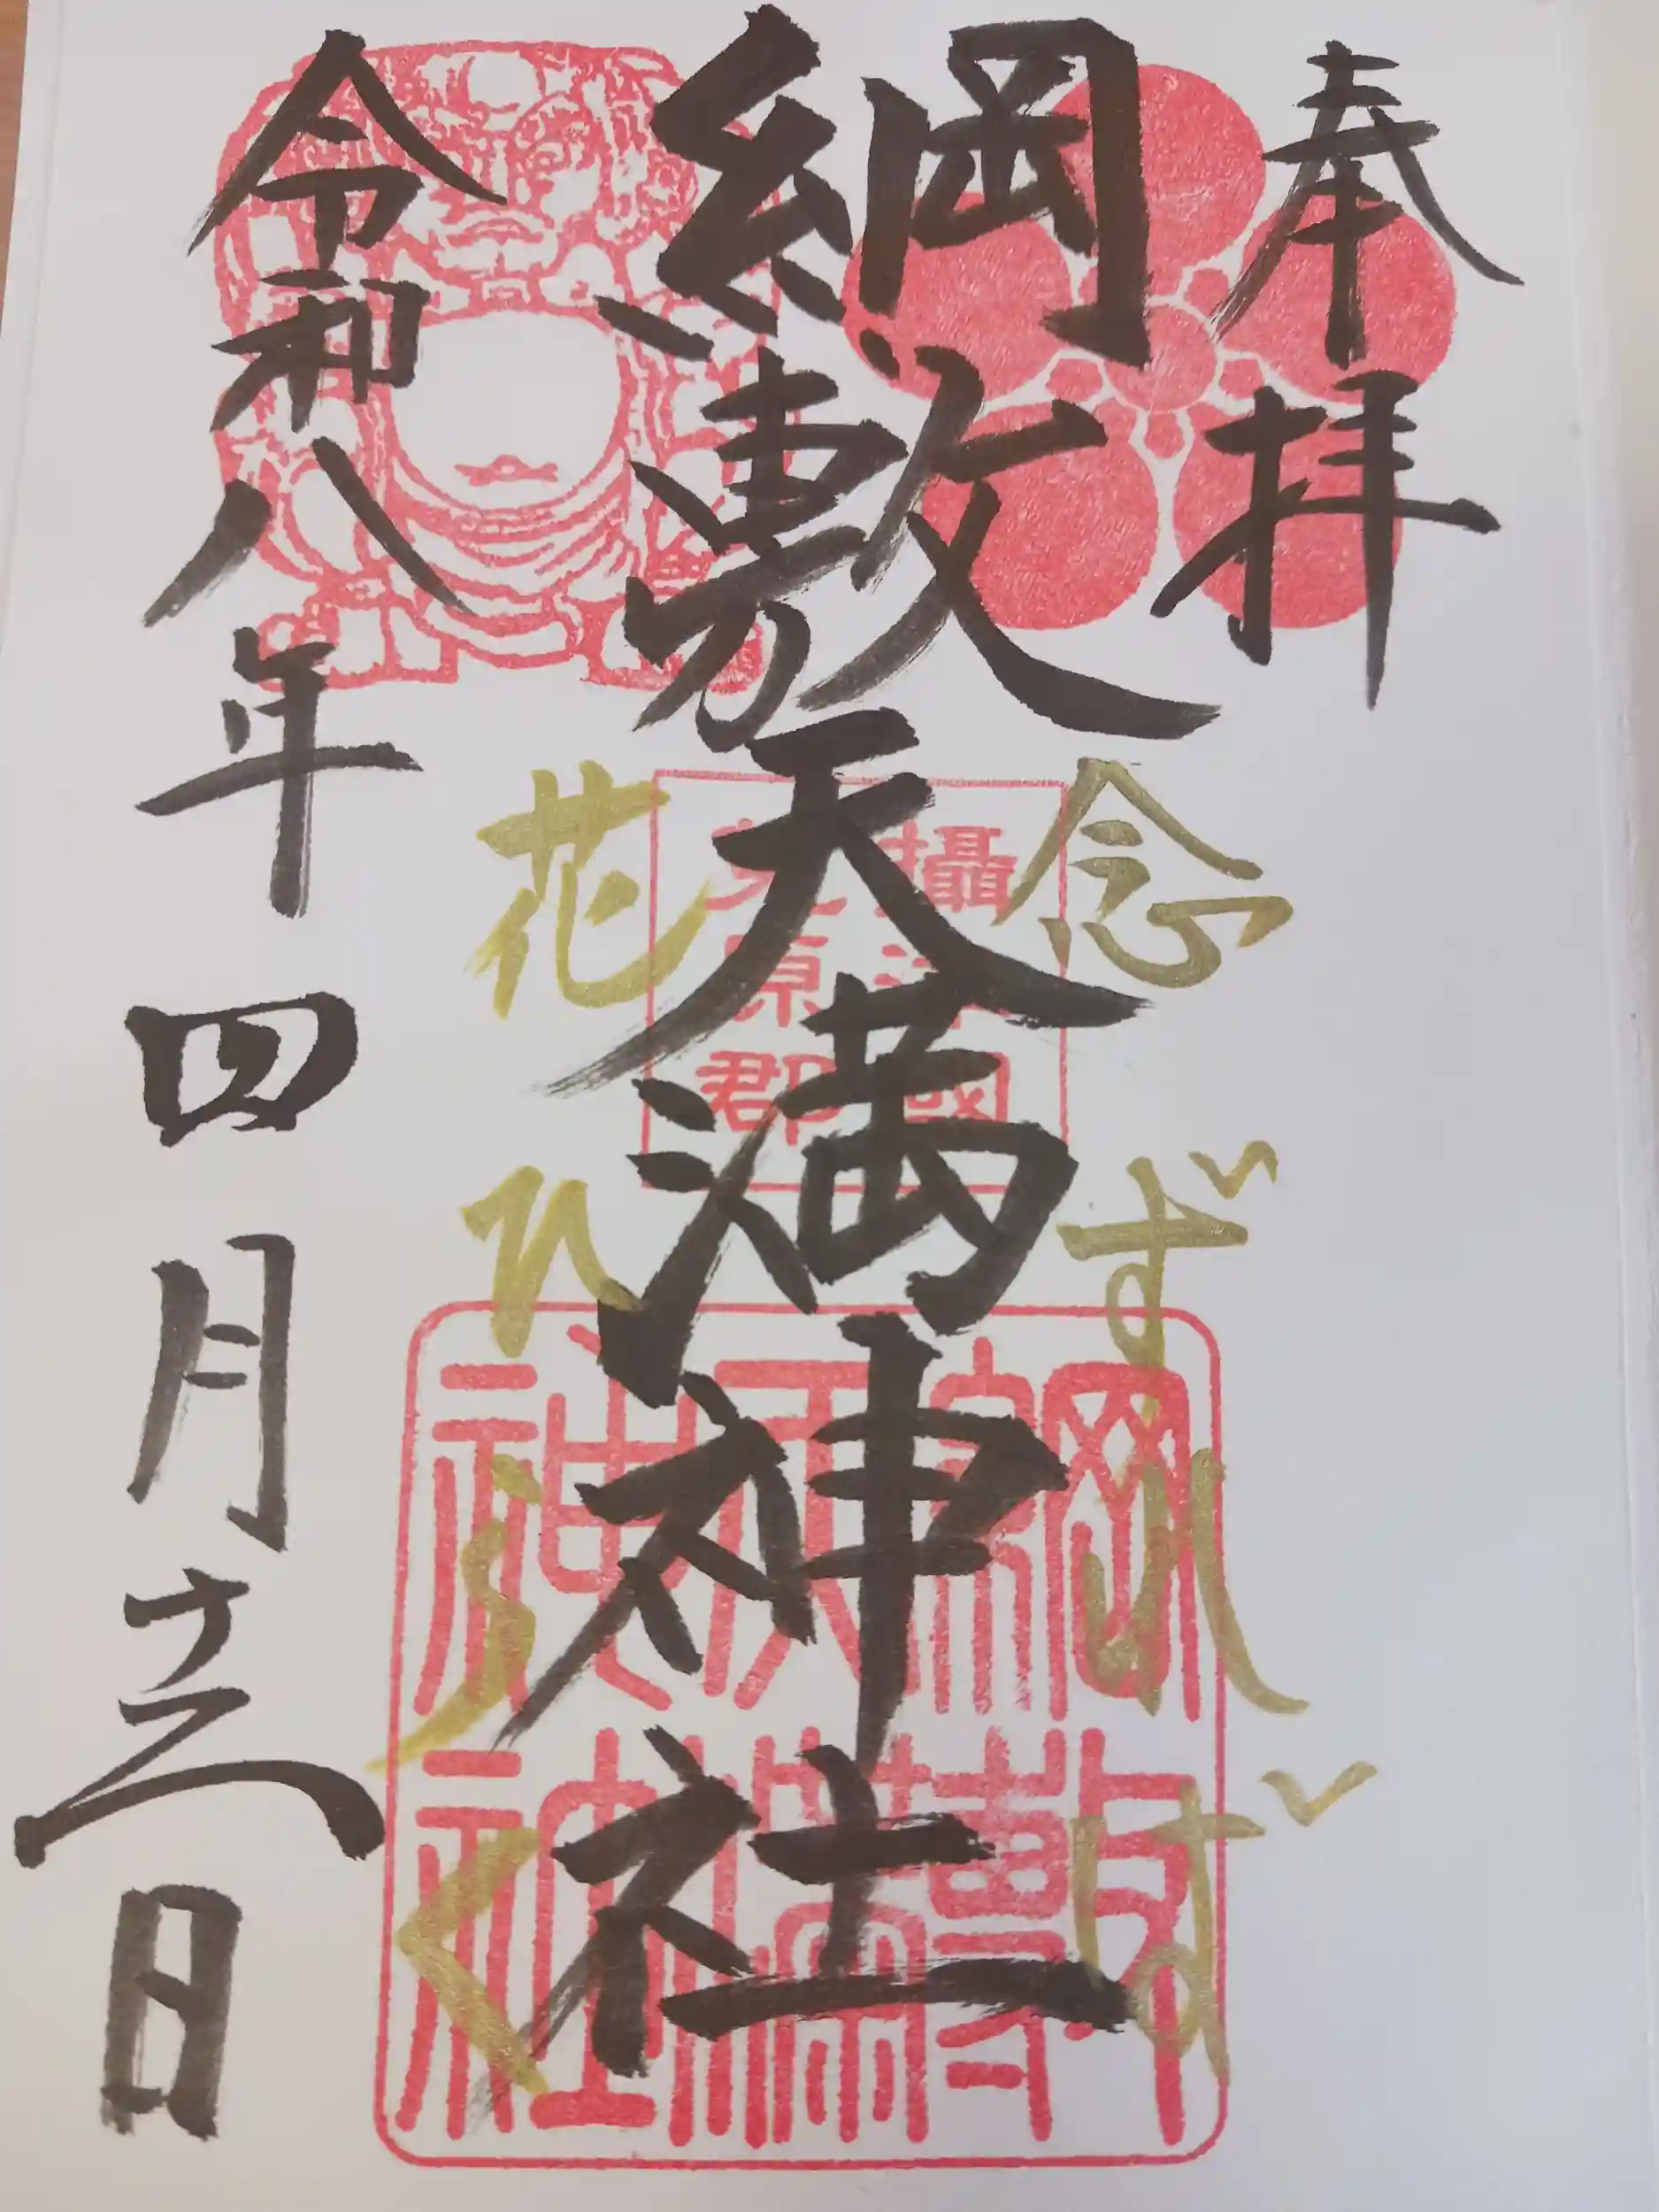 奉拝
綱敷天満神社
令和八年四月十三日
念ずれば
花ひらく
攝津國
菟原郡
綱敷
天満
神社